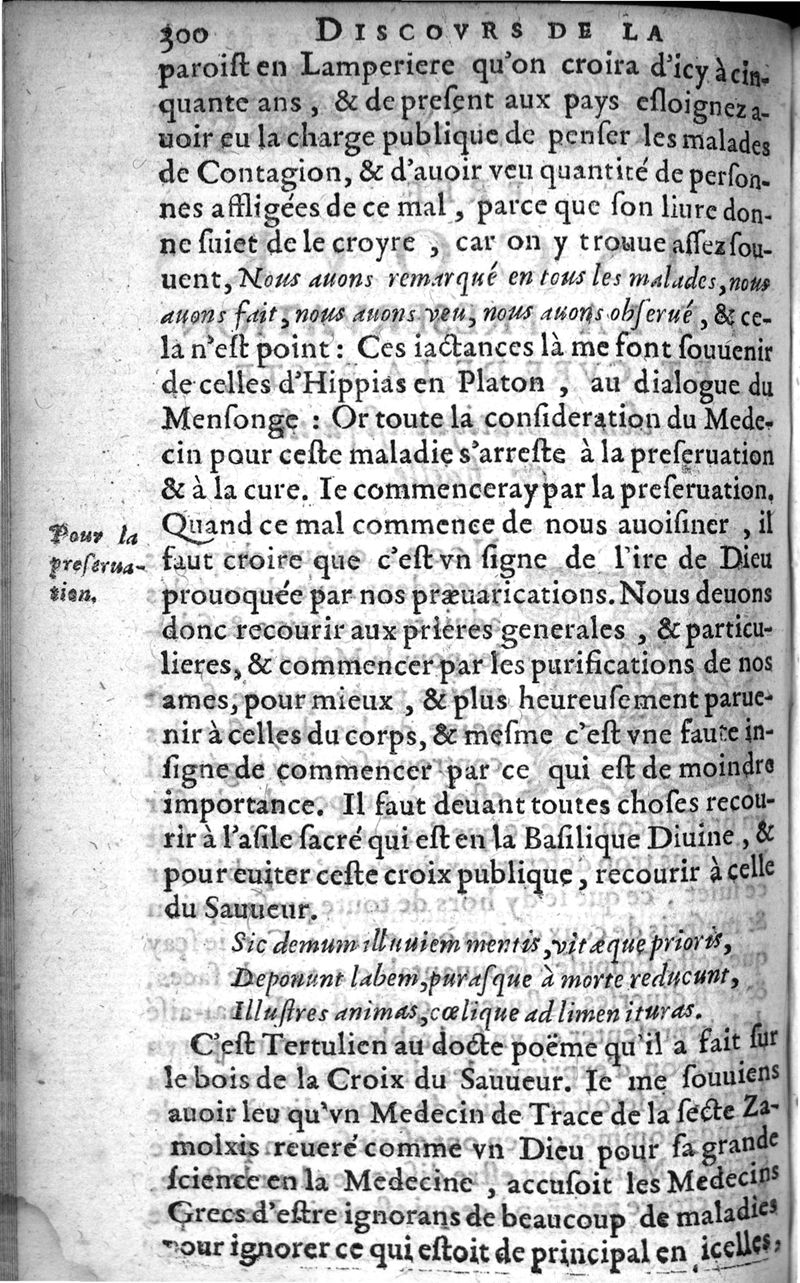 300 DISCOVRS DE LA
paroist en Lamperiere qu'on croira d'icy à cin-
quante ans, & de preſent aux pays eſloignez a-
uoir eu la charge publique de penſer les malades
de Contagion, & d'auoir veu quantité de perſon-
nes affligées de ce mal, parce que ſon liure don-
ne ſuiet de le croyre, car on y trouue aſſez ſou-
uent, Nous auons remarqué en tous les malades, nous
auons fait, nous auons veu, nous auons obſerué, & ce-
la n'eſt point: Ces iactances là me font ſouuenir
de celles d'Hippias en Platon, au dialogue du
Menſonge: Or toute la conſideration du Mede-
cin pour ceſte maladie s'arreſte à la preſeruation
& à la cure. Ie commenceray par la preſeruation.
Pour la
preſerua-
tion.
Quand ce mal commence de nous auoiſiner, il
faut croire que c'eſt vn ſigne de l'ire de Dieu
prouoquée par nos præuarications. Nous deuons
donc recourir aux prieres generales, & particu-
lieres, & commencer par les purifications de nos
ames, pour mieux, & plus heureuſement parue-
nir à celles du corps, & meſme c'eſt vne faute in-
ſigne de commencer par ce qui eſt de moindre
importance. Il faut deuant toutes choſes recou-
rir à l'aſile ſacré qui eſt en la Baſilique Diuine, &
pour euiter ceſte croix publique, recourir à celle
du Sauueur.
Sic demum illuuiem mentis, vitæque prioris,
Deponunt labem, puraſque à morte reducunt,
Illuſtres animas, cœlique ad limen ituras.
C'eſt Tertulien au docte poëme qu'il a fait ſur
le bois de la Croix du Sauueur. Ie me ſouuiens
auoir leu qu'vn Medecin de Trace de la ſecte Za-
molxis reueré comme vn Dieu pour ſa grande
ſcience en la Medecine, accuſoit les Medecins
Grecs d'eſtre ignorans de beaucoup de maladies
pour ignorer ce qui eſtoit de principal en icelles,